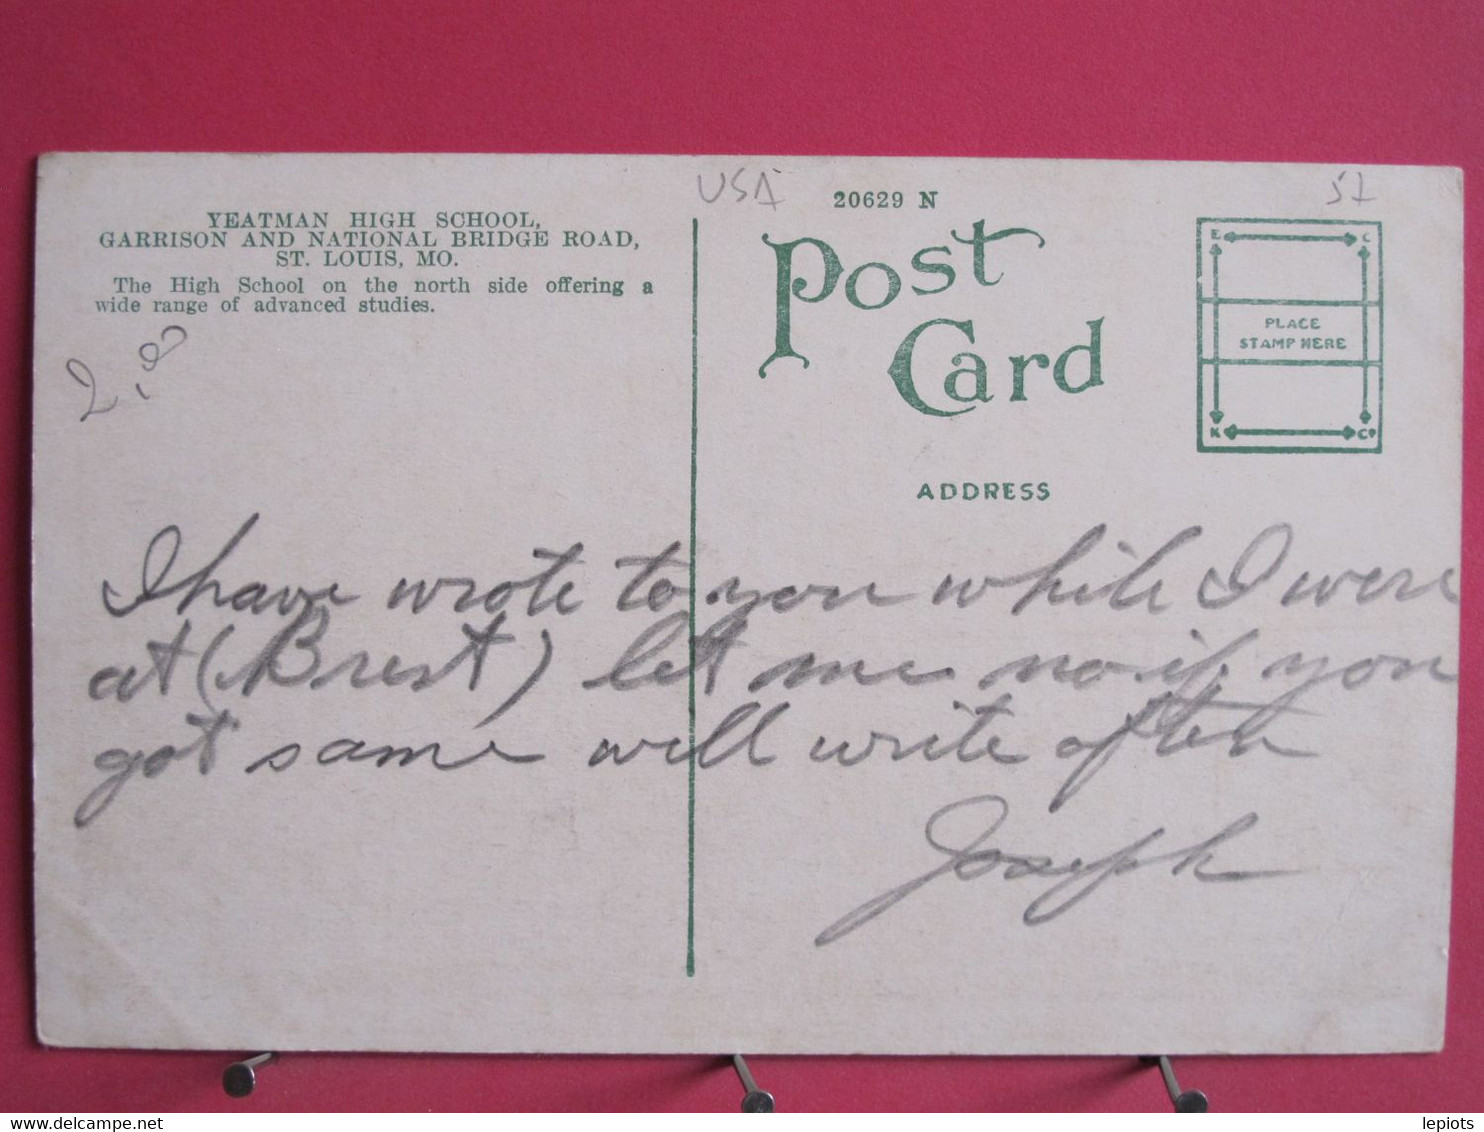 USA
20629 N
51
YEATMAN HIGH SCHOOL,
GARRISON AND NATIONAL BRIDGE ROAD,
ST. LOUIS, MO.
The High School on the north side offering a
wide range of advanced studies.
2,00
Post
Card
E C
PLACE
STAMP HERE
K Co
ADDRESS
I have wrote to you while I were
at (Brest) let me no if you
got same will write often
Joseph
delcampe.net
lepiots